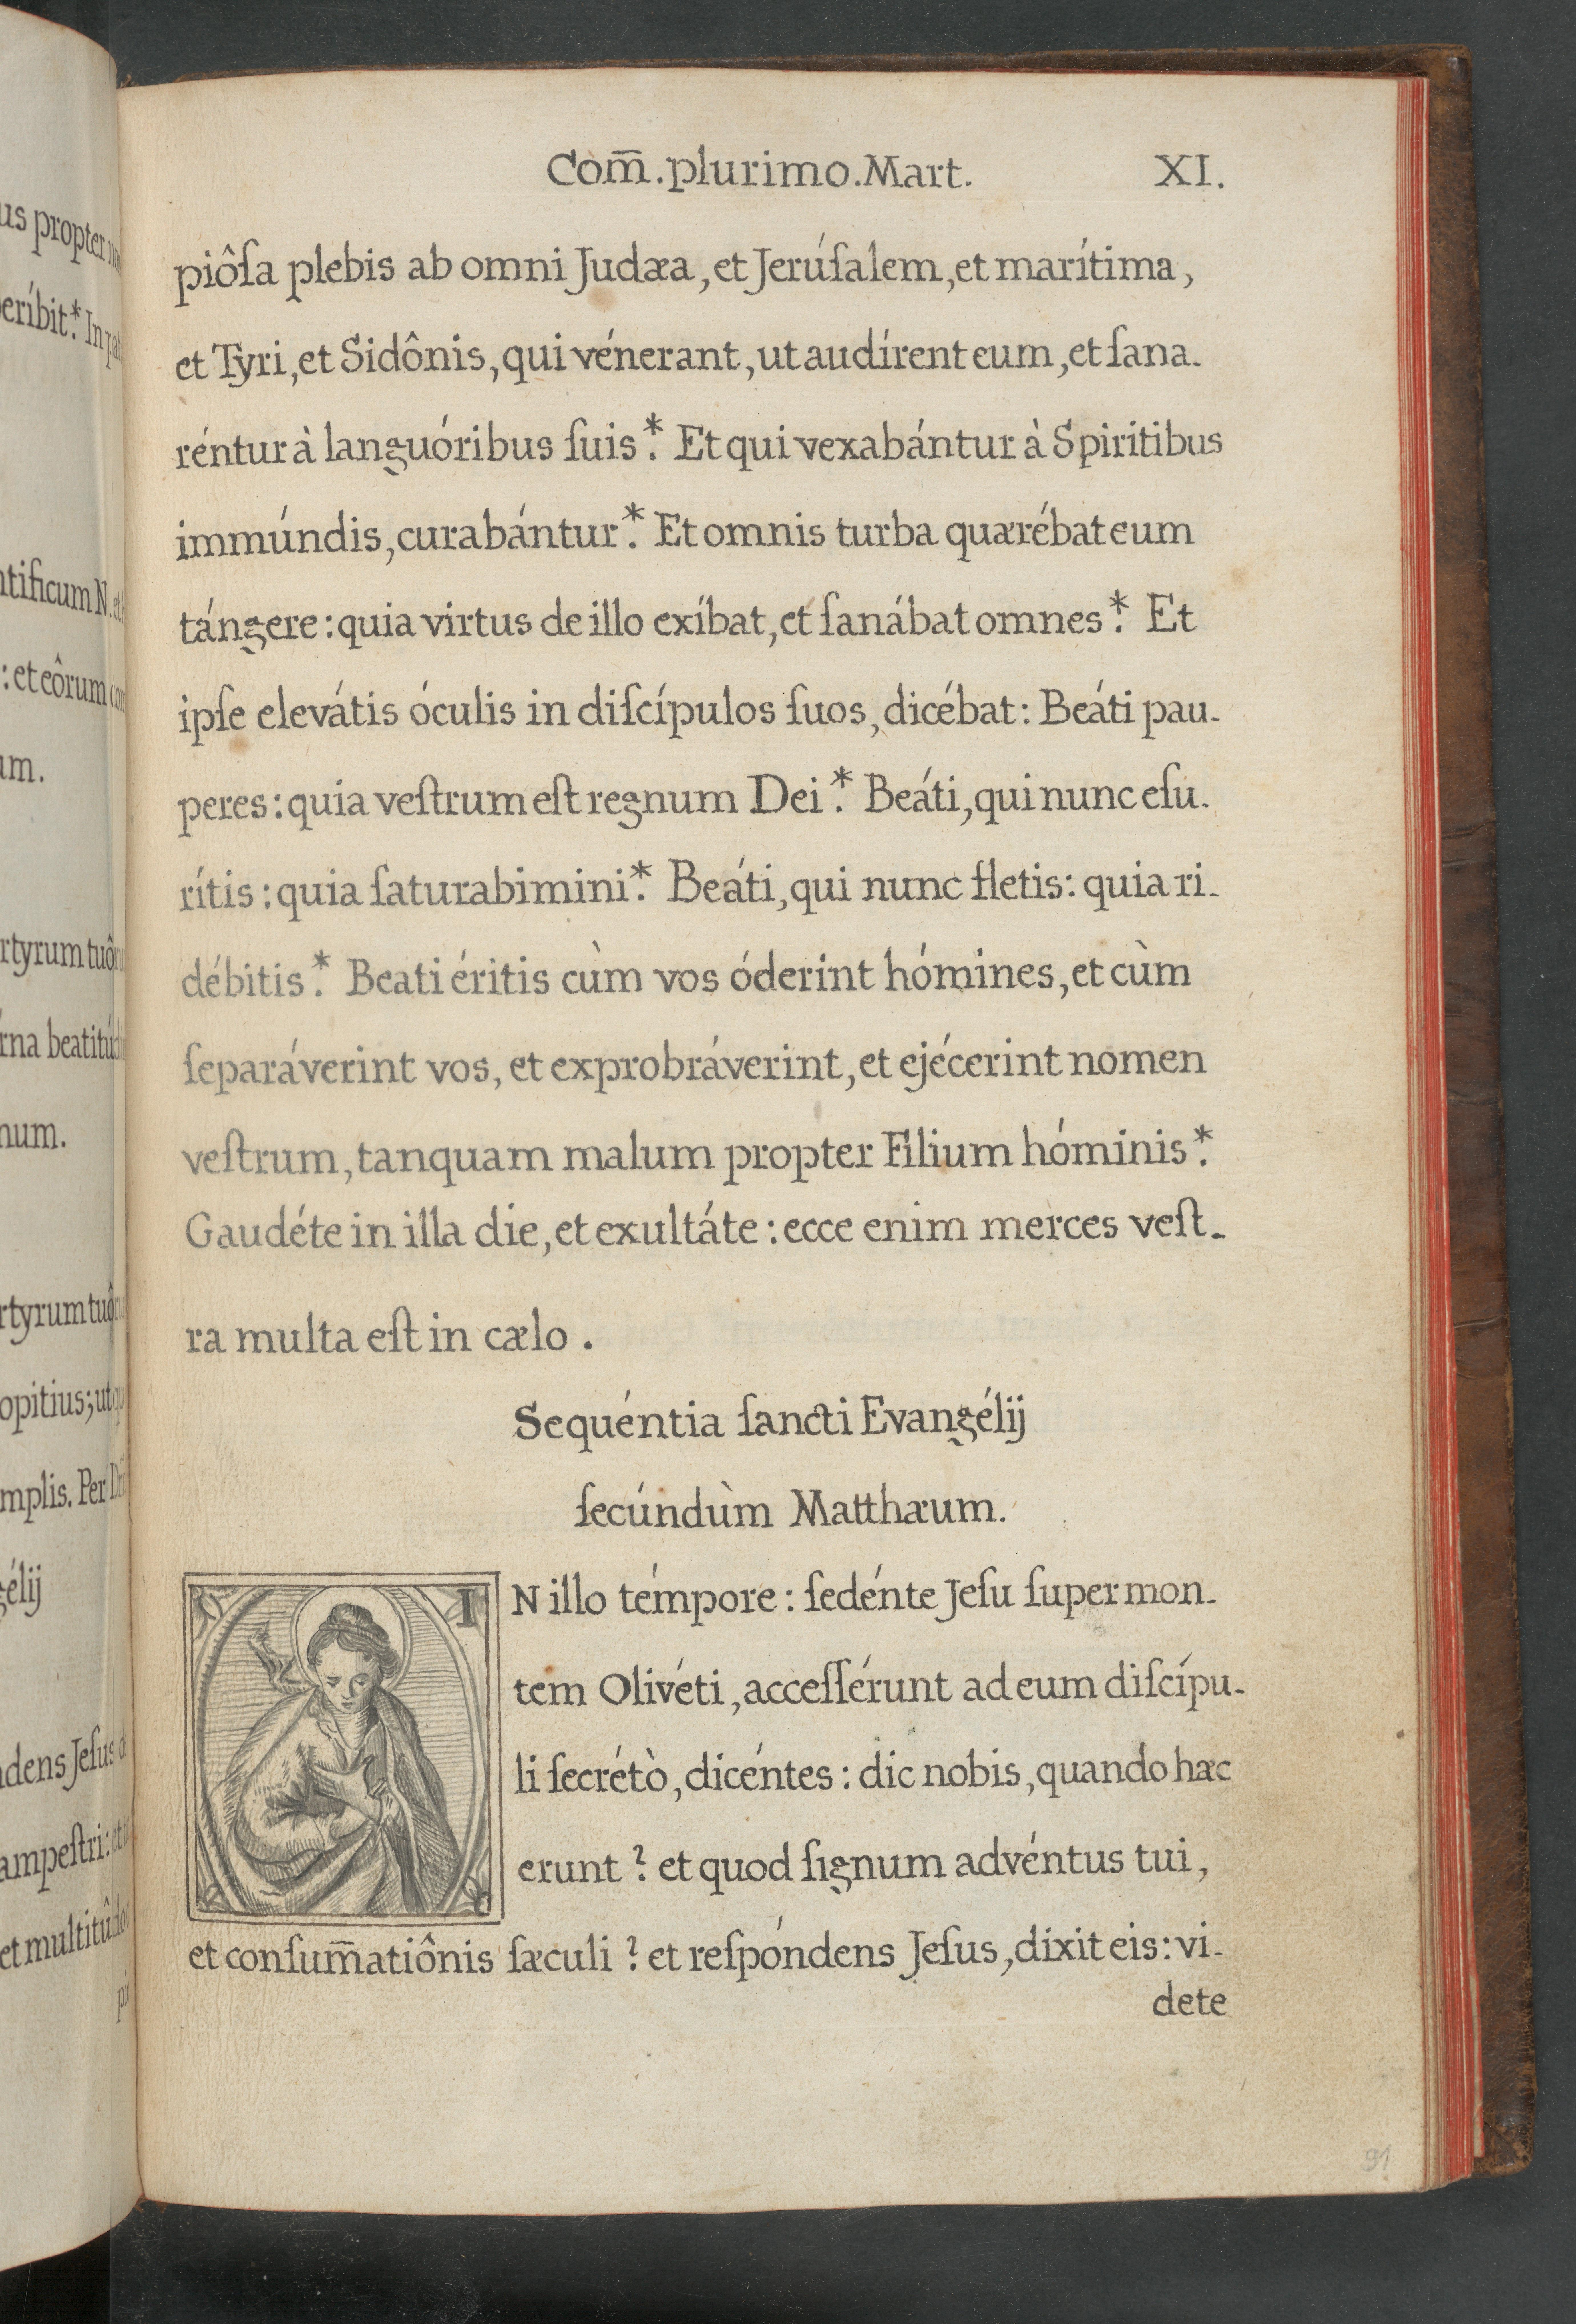 us propter
eríbit.* In
ntificum N. et
: et eôrum
um.
rtyrum tuô
rna beatitú
num.
rtyrum tuô
opitius; ut
mplis. Per
gélij
ndens Jeſus
ampeſtri: et
et multitûdo
Com̅. plurimo. Mart. XI.
piôſa plebis ab omni Judæa, et Jerúſalem, et marítima,
et Tyri, et Sidônis, qui vénerant, ut audírent eum, et ſana-
réntur à languóribus ſuis.* Et qui vexabántur à Spiritibus
immúndis, curabántur.* Et omnis turba quærébat eum
tángere: quia virtus de illo exíbat, et ſanábat omnes.* Et
ipſe elevátis óculis in diſcípulos ſuos, dicébat: Beáti pau-
peres: quia veſtrum eſt regnum Dei.* Beáti, qui nunc eſu-
rítis: quia ſaturabimini.* Beáti, qui nunc fletis: quia ri-
débitis.* Beati éritis cùm vos óderint hómines, et cùm
ſeparáverint vos, et exprobráverint, et ejécerint nomen
veſtrum, tanquam malum propter Filium hóminis.*
Gaudéte in illa die, et exultáte: ecce enim merces veſt-
ra multa eſt in cælo.
Sequéntia ſancti Evangélij
ſecúndùm Matthæum.
IN illo témpore: ſedénte Jeſu ſuper mon-
tem Olivéti, acceſſérunt ad eum diſcípu-
li ſecrétò, dicéntes: dic nobis, quando hæc
erunt? et quod ſignum advéntus tui,
et conſum̅atiônis ſæculi? et reſpóndens Jeſus, dixit eis: vi-
dete
91